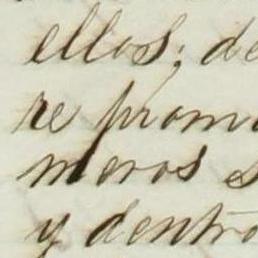 ellos; de
re prom
meros s
y dentro